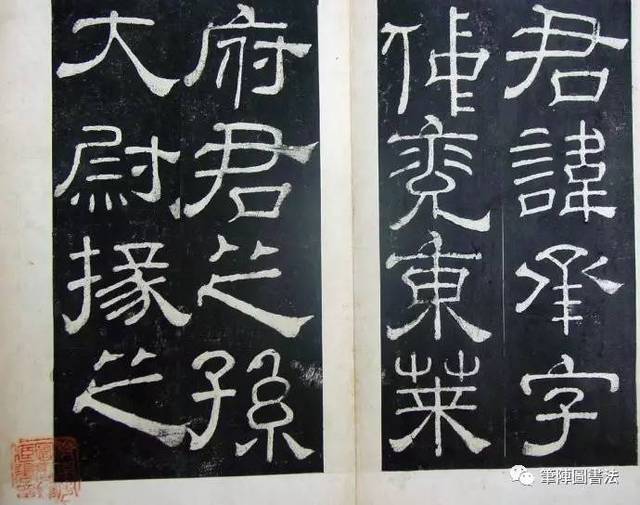 君諱承字
仲兖東萊
府君之孫
大尉掾之
筆陣圖書法